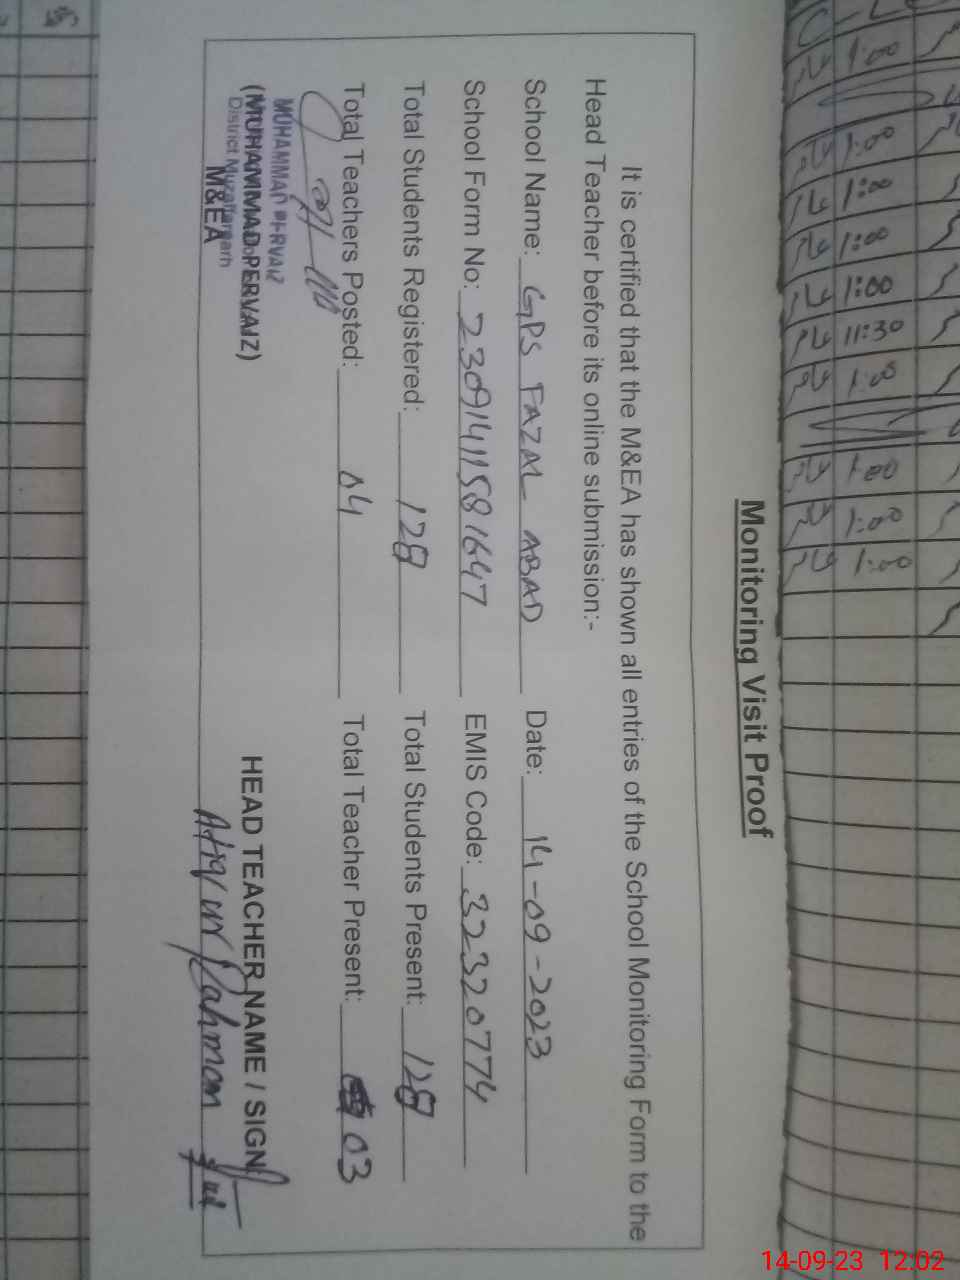 Monitoring Visit Proof
It is certified that the M&EA has shown all entries of the School Monitoring Form to the
Head Teacher before its online submission:-
School Name: GPS FAZAL ABAD Date: 14-09-2023
School Form No: 23091411581647 EMIS Code: 32320774
Total Students Registered: 128 Total Students Present: 128
Total Teachers Posted: 04 Total Teacher Present: 03
MUHAMMAD PERVAIZ
(MUHAMMAD PERVAIZ) HEAD TEACHER NAME / SIGN
District Muzaffargarh
M&EA Atiq ur Rahman
1:00
1:00
1:00
1:00
1:00
11:30
1:00
1:00
1:00
1:00
14-09-23 12:02